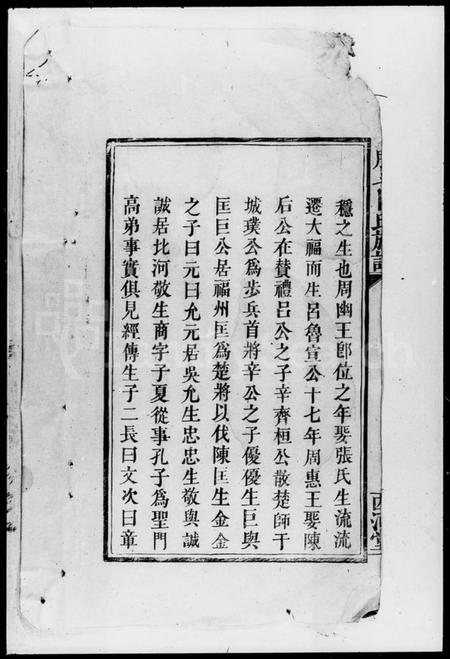 穩之生也周幽王卽位之年娶張氏生流流
遷大福而生呂魯宣公十七年周惠王娶陳
后公在贊禮呂公之子辛齊桓公敗楚師于
城璞公爲步兵首將辛公之子優優生巨與
匡巨公居福州匡爲楚將以伐陳匡生金金
之子曰元曰允元居吳允生忠忠生敬與誠
誠居比河敬生商字子夏從事孔子爲聖門
高弟事實俱見經傳生子二長曰文次曰章
氏族譜
西河堂